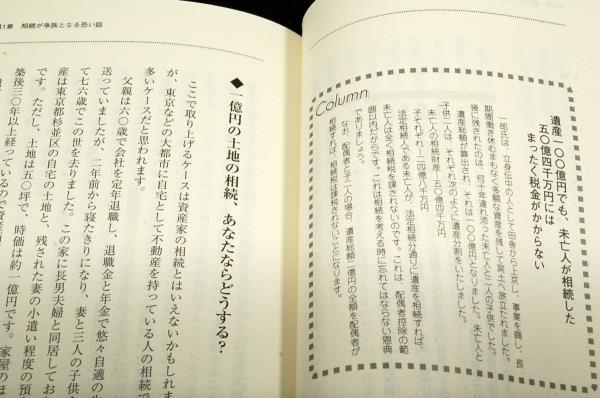 遺産一〇〇億円でも、未亡人が相続した
五〇億四千万円には
まったく税金がかからない
一田氏は、立身伝中の人として田舎から上京し、事業を興し、長
期間働き休むまもなく多額な資産を残して冥土へ旅立たれました。
後に残されたのは、何十年連れ添った未亡人と二人の子供でした。
遺産総額が算出され、それは一〇〇億円となりました。未亡人と
子供二人は、それぞれ次のように遺産分割をいたしました。
未亡人の相続財産…五〇億四千万円
子それぞれ…二四億八千万円
法定相続人である未亡人が、法定相続分通りに遺産を相続すれば、
未亡人は全く相続税を課されないのです。これは、配偶者控除の範
囲以内だからです。これは相続を考える時に忘れてはならない恩典
でありましょう。
なお、配偶者と子二人の場合、遺産総額二億円の全額を配偶者が
相続すれば、相続税は課税されないことになります。
Column
第1章 相続が争族となる恐い話
◆一億円の土地の相続、あなたならどうする?
ここで取り上げるケースは資産家の相続とはいえないかもしれま
が、東京などの大都市に自宅として不動産を持っている人の相続で
多いケースだと思われます。
父親は六〇歳で会社を定年退職し、退職金と年金で悠々自適の生
送っていましたが、二年前から寝たきりになり、妻と三人の子供を
て七六歳でこの世を去りました。この家に長男夫婦と同居しており
産は東京都杉並区の自宅の土地と、残された妻の小遣い程度の預
です。ただし、土地は五〇坪で、時価は約一億円です。家屋のほ
築後三〇年以上経っているので資産